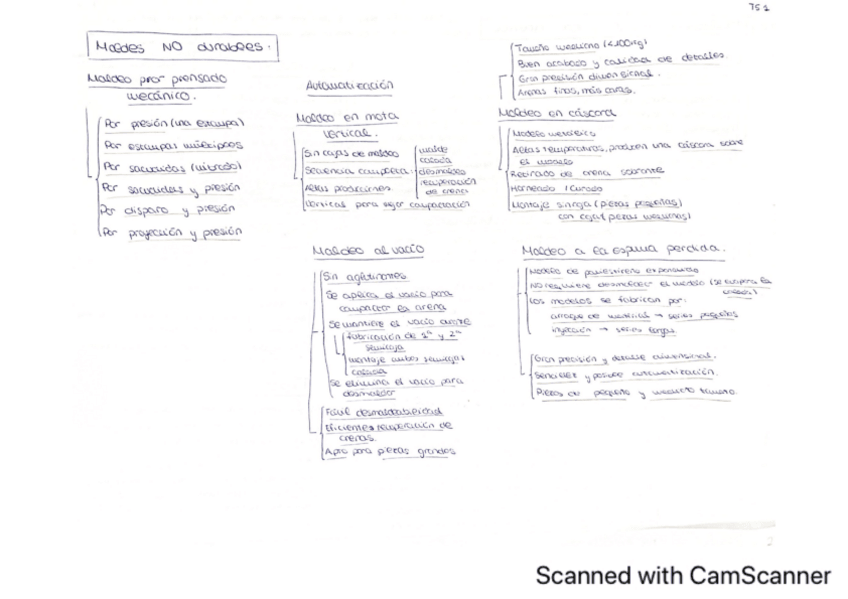 T5 1
Moldes NO durables.
Moldeo por prensado
mecánico.
Por presión (una estampa)
Por estampas múltiples
Por sacudidas (vibrado)
Por sacudidas y presión
Por disparo y presión
Por proyección y presión
Automatización
Moldeo en mota
vertical.
Sin cajas de moldeo
Secuencia completa:
molde
colada
desmoldeo
recuperación
de arena
Altas producciones
Vertical para mejor compactación
Moldeo al vacío
Sin aglutinantes
Se aplica el vacío para
compactar la arena
Se mantiene el vacío durante
fabricación de 1ª y 2ª
semicaja
montaje ambas semicajas
colada
Se elimina el vacío para
desmoldar
Fácil desmoldeabilidad
Eficiente recuperación de
arenas.
Apto para piezas grandes
Tamaño mediano (<100kg)
Buen acabado y calidad de detalles
Gran precisión dimensional.
Arenas finas, más caras.
Moldeo en cáscara
Modelo metálico
Altas temperaturas, producen una cáscara sobre
el modelo
Retirado de arena sobrante
Horneado / curado
Montaje sin caja (piezas pequeñas)
con caja (piezas medianas)
Moldeo a la espuma perdida.
Modelo de poliestireno expandido
NO requiere desmoldear el modelo (se evapora la
colada)
Los modelos se fabrican por:
arranque de material → series pequeñas
inyección → series largas.
Gran precisión y detalle dimensional.
Sencillez y posible automatización.
Piezas de pequeño y mediano tamaño.
2
Scanned with CamScanner